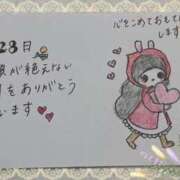 28日
が絶えない
をありがとう
います
心をこめておもて
します